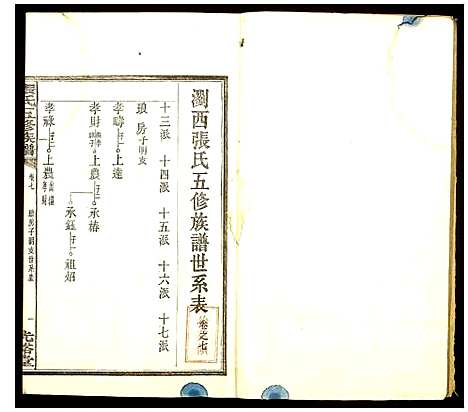 瀏西張氏五修族譜世系表
卷之七
十三派 十四派 十五派 十六派 十七派
琅房子明支
孝疇 子一 上達
孝財 子一 上農 承椿
承鈺 子一 祖炤
孝祿 子一 上農
張氏五修族譜
卷七
琅房子明支世系表
一
光裕堂